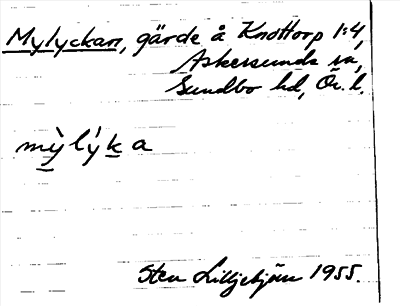 Mylyckan, gärde å Knottorp 1:4,
Askersunds sn,
Sundbo hd, Ör. l.
mỳlýka
Sten Lilljebjörn 1955.